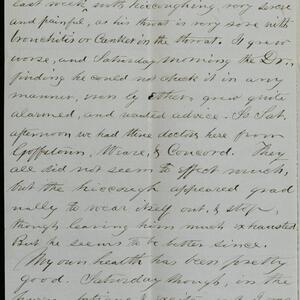 last week with hiccoughing, very severe
and painful, as his throat is very sore with
bronchitis or Canker in the throat. It grew
worse, and Saturday morning the Dr.,
finding he could not check it in any
manner, even by ether, grew quite
alarmed, and wanted advice. So Sat.
afternoon we had three doctors here from
Goffstown, Weare, & Concord. They
all did not seem to effect much,
but the hiccough appeared grad
ually to wear itself out, & stop,
though leaving him much exhausted.
But he seems to be better since.
My own health has been pretty
good. Saturday though, in the